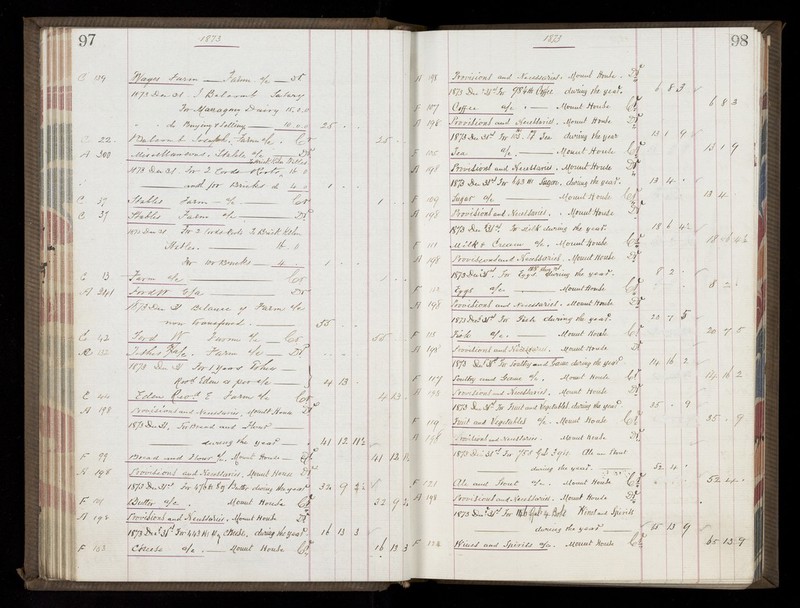 97
1873
Farm a/c Dr
1873 Dec 31
For Managing Dairy 15.0.0
do Buying & Selling 10.0.0 25
C 22 Farm a/c Cr 25
A 300 Miscellaneous Dr
1873 Dec 31 For 2 Cords Roots, 16 0
and for Bricks 4 0 1
C 37 Stables Farm a/c Cr 1
C 37 Stables Farm a/c Dr
1873 Dec 31 For 2 Cords Roots to Brick Kiln
16 0
for Bricks 4 1
C 13 Farm a/c Cr 1
A 241 Ford W Dr
1873 Dec 31 Balance of Farm a/c
now transferred 55
C 42 Ford W Farm a/c Cr 55
Farm a/c Dr
1873 Dec 31 For 1 Years
14 13
C 44 Eden Revd E Farm a/c Cr 14 13
A 198 Provisions and Necessaries, Mount House Dr
1873 Dec 31, For Bread and Flour
during the year 41 12 11½
F 99 Bread and Flour a/c, Mount House Cr 41 12 11½
A 198 Provisions and Necessaries, Mount House Dr
1873 Dec 31st For Butter during the year 32 9
Butter a/c. Mount House Cr 32 9
A 198 Provisions and Necessaries. Mount House Dr
1873 Dec 31st For Cheese. during the year 16 13 3
F 103 Cheese a/c. Mount House Cr 16 13 3
1873
98
A 198 Provisions and Necessaries. Mount House Dr
1873 Dec 31st For 98 lb Coffee during the year. 6 8 3
F 107 Coffee a/c. Mount House Cr 6 8 3
A 198 Provisions and Necessaries. Mount House Dr
1873 Dec 31st For Tea during the year 13 1 9
Tea a/c. Mount House Cr 13 1 9
A 198 Provisions and Necessaries. Mount House Dr
1873 Dec 31st For 643 lb Sugar, during the year. 13 4
Sugar a/c. Mount House Cr 13 4
A 198 Provisions and Necessaries. Mount House Dr
1873 Dec 31st For Milk during the year. 18 6 4½
F 111 Milk & Cream a/c. Mount House Cr 18 6 4½
A 198 Provisions and Necessaries. Mount House Dr
1873 Dec 31st. For Eggs during the year. 8 2
Eggs a/c. Mount House Cr 8 2
A 198 Provisions and Necessaries. Mount House Dr
1873 Dec 31st For Fish during the year. 20 7 5
F 115 Fish a/c. Mount House Cr 20 7 5
A 198 Provisions and Necessaries. Mount House Dr
1873 Dec 31st For Poultry and Game during the year 14 16 2
F 117 Poultry and Game a/c. Mount House Cr 14 16 2
A 198 Provisions and Necessaries. Mount House Dr
1873 Dec 31st For Fruit and Vegetables during the year 35 . 9
F 119 Fruit and Vegetables a/c. Mount House Cr 35 . 9
A 198 Provisions and Necessaries. Mount House Dr
1873 Dec 31st For Ale Stout
during the year. 52 4
F 121 Ale and Stout a/c. Mount House Cr 52 4
A 198 Provisions and Necessaries. Mount House Dr
1873 Dec 31st For Wines and Spirits
during the year 65 13 9
Wines and Spirits a/c. Mount House Cr 65 13 9